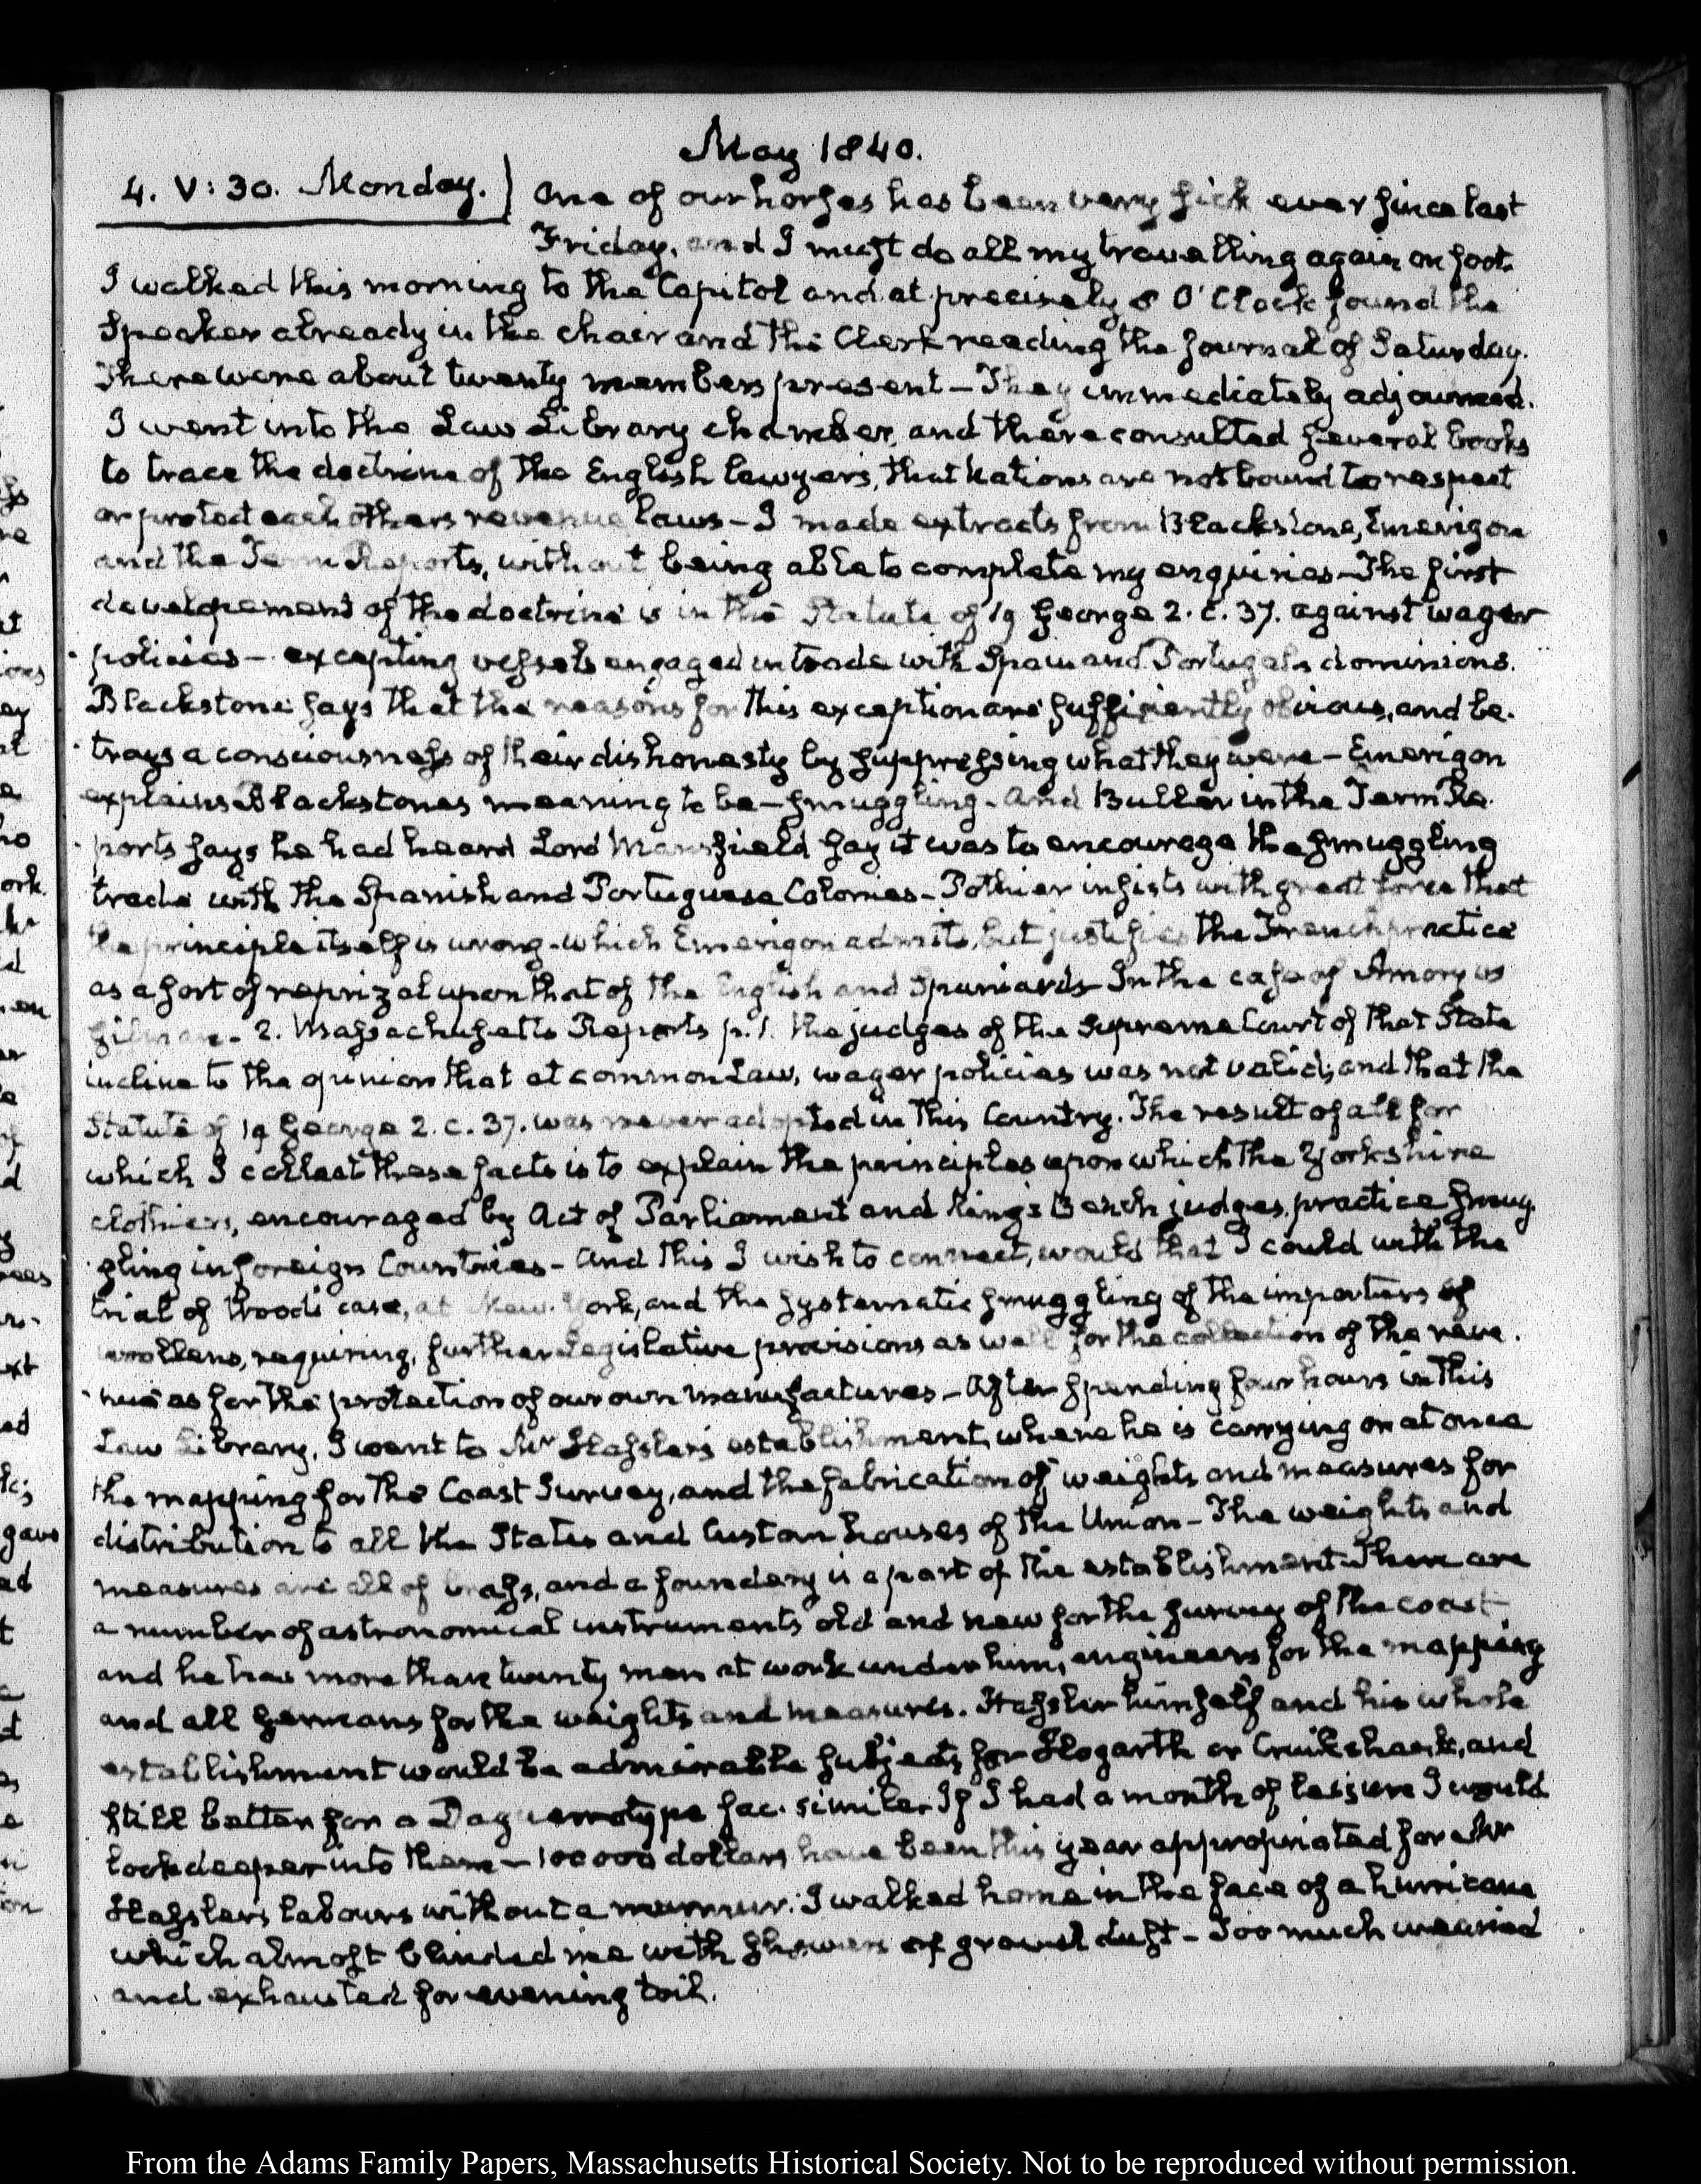 May 1840.
4. V: 30. Monday. One of our horses has been very sick ever since last
Friday, and I must do all my travelling again on foot.
I walked this morning to the Capitol and at precisely 8 O'Clock found the
Speaker already in the chair and the Clerk reading the journal of Saturday.
There were about twenty members present – They immediately adjourned.
I went into the Law Library chamber, and there consulted several books
to trace the doctrine of the English lawyers, that Nations are not bound to respect
or protect each others revenue laws – I made extracts from Blackstone, Emerigon
and the Term Reports, without being able to complete my enquiries – The first
developement of the doctrine is in the Statute of 19 George 2. c. 37. against wager
policies – excepting vessels engaged in trade with Spain and Portugal's dominions.
Blackstone says that the reasons for this exception are sufficiently obvious, and be-
trays a consciousness of their dishonesty by suppressing what they were – Emerigon
explains Blackstones meaning to be – smuggling – And Buller in the Term Re-
ports says he had heard Lord Mansfield say it was to encourage the smuggling
trade with the Spanish and Portuguese Colonies – Pothier insists with great force that
the principle itself is wrong – which Emerigon admits, but justifies the French practice
as a sort of reprizal upon that of the English and Spaniards – In the case of Amory vs
Gilman – 2. Massachusetts Reports p. 1. the judges of the Supreme Court of that State
incline to the opinion that at common Law, wager policies was not valid; and that the
Statute of 19 George 2. c. 37. was never adopted in this Country. The result of all for
which I collect these facts is to explain the principles upon which the Yorkshire
clothiers, encouraged by Act of Parliament and King's Bench judges, practice smug-
gling in foreign Countries – And this I wish to connect, would that I could with the
trial of Wood's case, at New-York, and the systematic smuggling of the importers of
woollens, requiring, further Legislative provisions as well for the collection of the reve-
nue as for the protection of our own manufactures – After spending four hours in this
Law Library, I went to Mr Hassler's establishment, where he is carrying on at once
the mapping for the Coast Survey, and the fabrication of weights and measures for
distribution to all the States and Custom houses of the Union – The weights and
measures are all of brass, and a foundery is a part of the establishment – There are
a number of astronomical instruments old and new for the survey of the coast,
and he has more than twenty men at work under him, engineers for the mapping
and all Germans for the weights and measures. Hassler himself and his whole
establishment would be admirable subjects for Hogarth or Cruikshank, and
still better for a Daguerrotype fac-simile – If I had a month of leisure I would
look deeper into them – 100000 dollars have been this year appropriated for Mr
Hassler's labours without a murmur. I walked home in the face of a hurricane
which almost blinded me with showers of gravel dust – Too much wearied
and exhausted for evening toil.
From the Adams Family Papers, Massachusetts Historical Society. Not to be reproduced without permission.